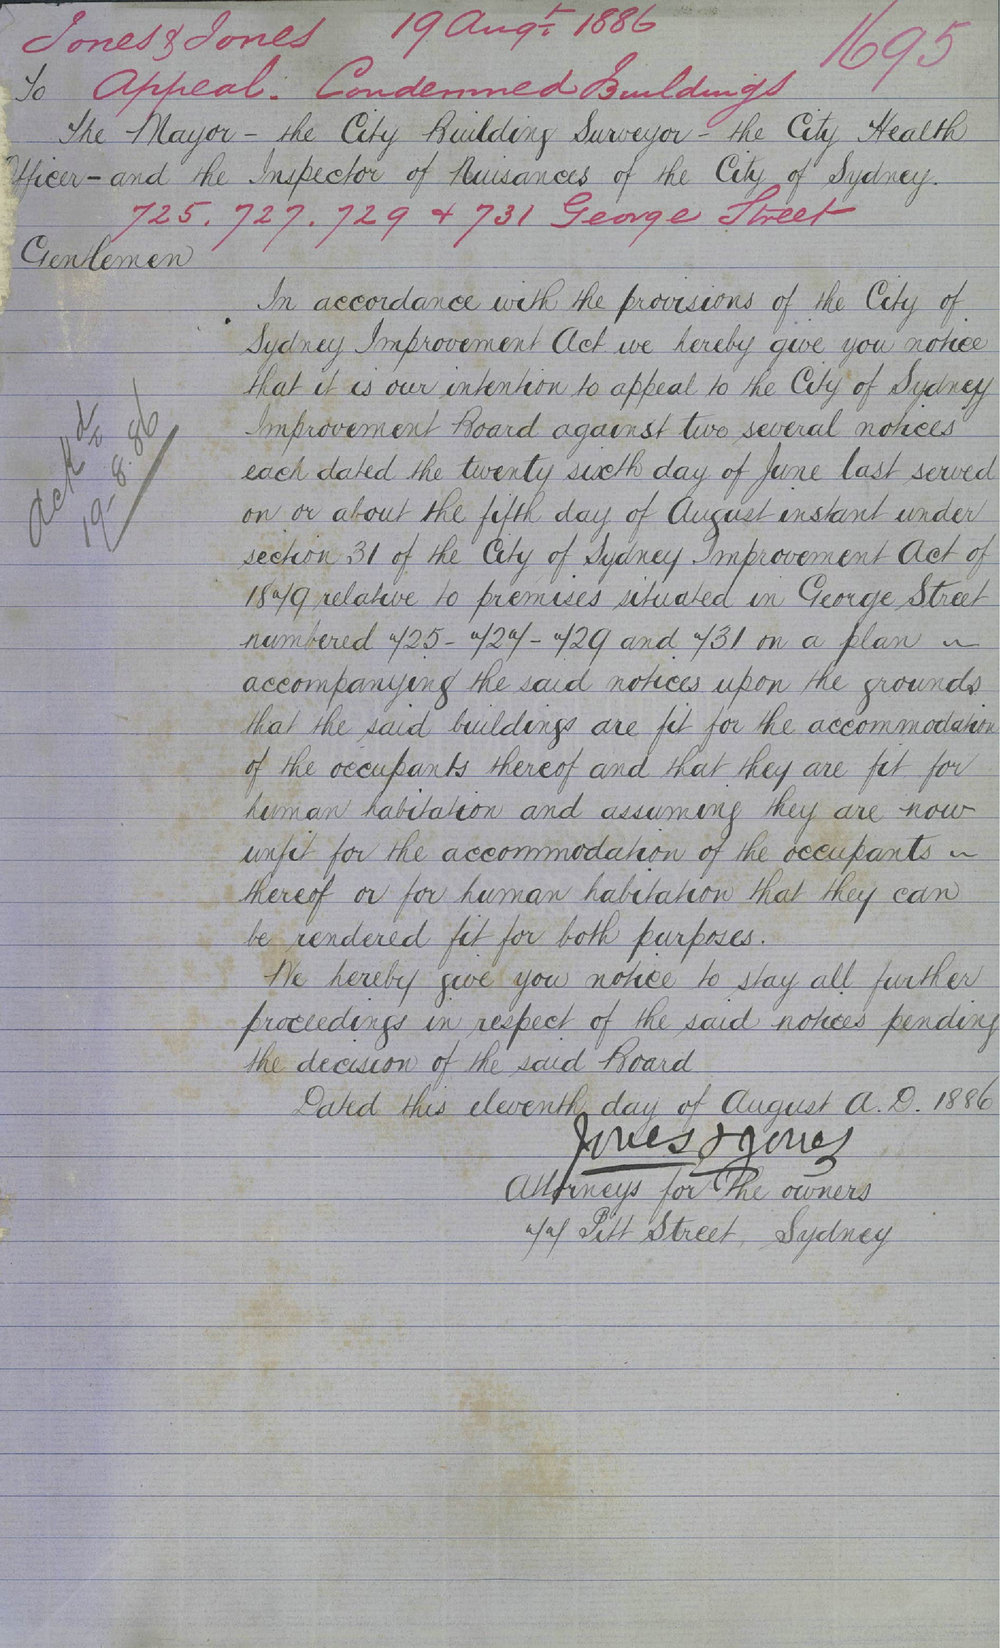 Jones & Jones 19 Augt. 1886 1695
To Appeal. Condemned Buildings
The Mayor - the City Building Surveyor - the City Health
Officer - and the Inspector of Nuisances of the City of Sydney.
725. 727. 729 & 731 George Street
Gentlemen
In accordance with the provisions of the City of
Sydney Improvement Act we hereby give you notice
that it is our intention to appeal to the City of Sydney
Improvement Board against two several notices
each dated the twenty sixth day of June last served
on or about the fifth day of August instant under
section 31 of the City of Sydney Improvement Act of
1879 relative to premises situated in George Street
numbered 725 - 727 - 729 and 731 on a plan
accompanying the said notices upon the grounds
that the said buildings are fit for the accommodation
of the occupants thereof and that they are fit for
human habitation and assuming they are now
unfit for the accommodation of the occupants
thereof or for human habitation that they can
be rendered fit for both purposes.
We hereby give you notice to stay all further
proceedings in respect of the said notices pending
the decision of the said Board
Dated this eleventh day of August A.D. 1886
Jones & Jones
Attorneys for The owners
77 Pitt Street, Sydney
Ackd
19-8-86